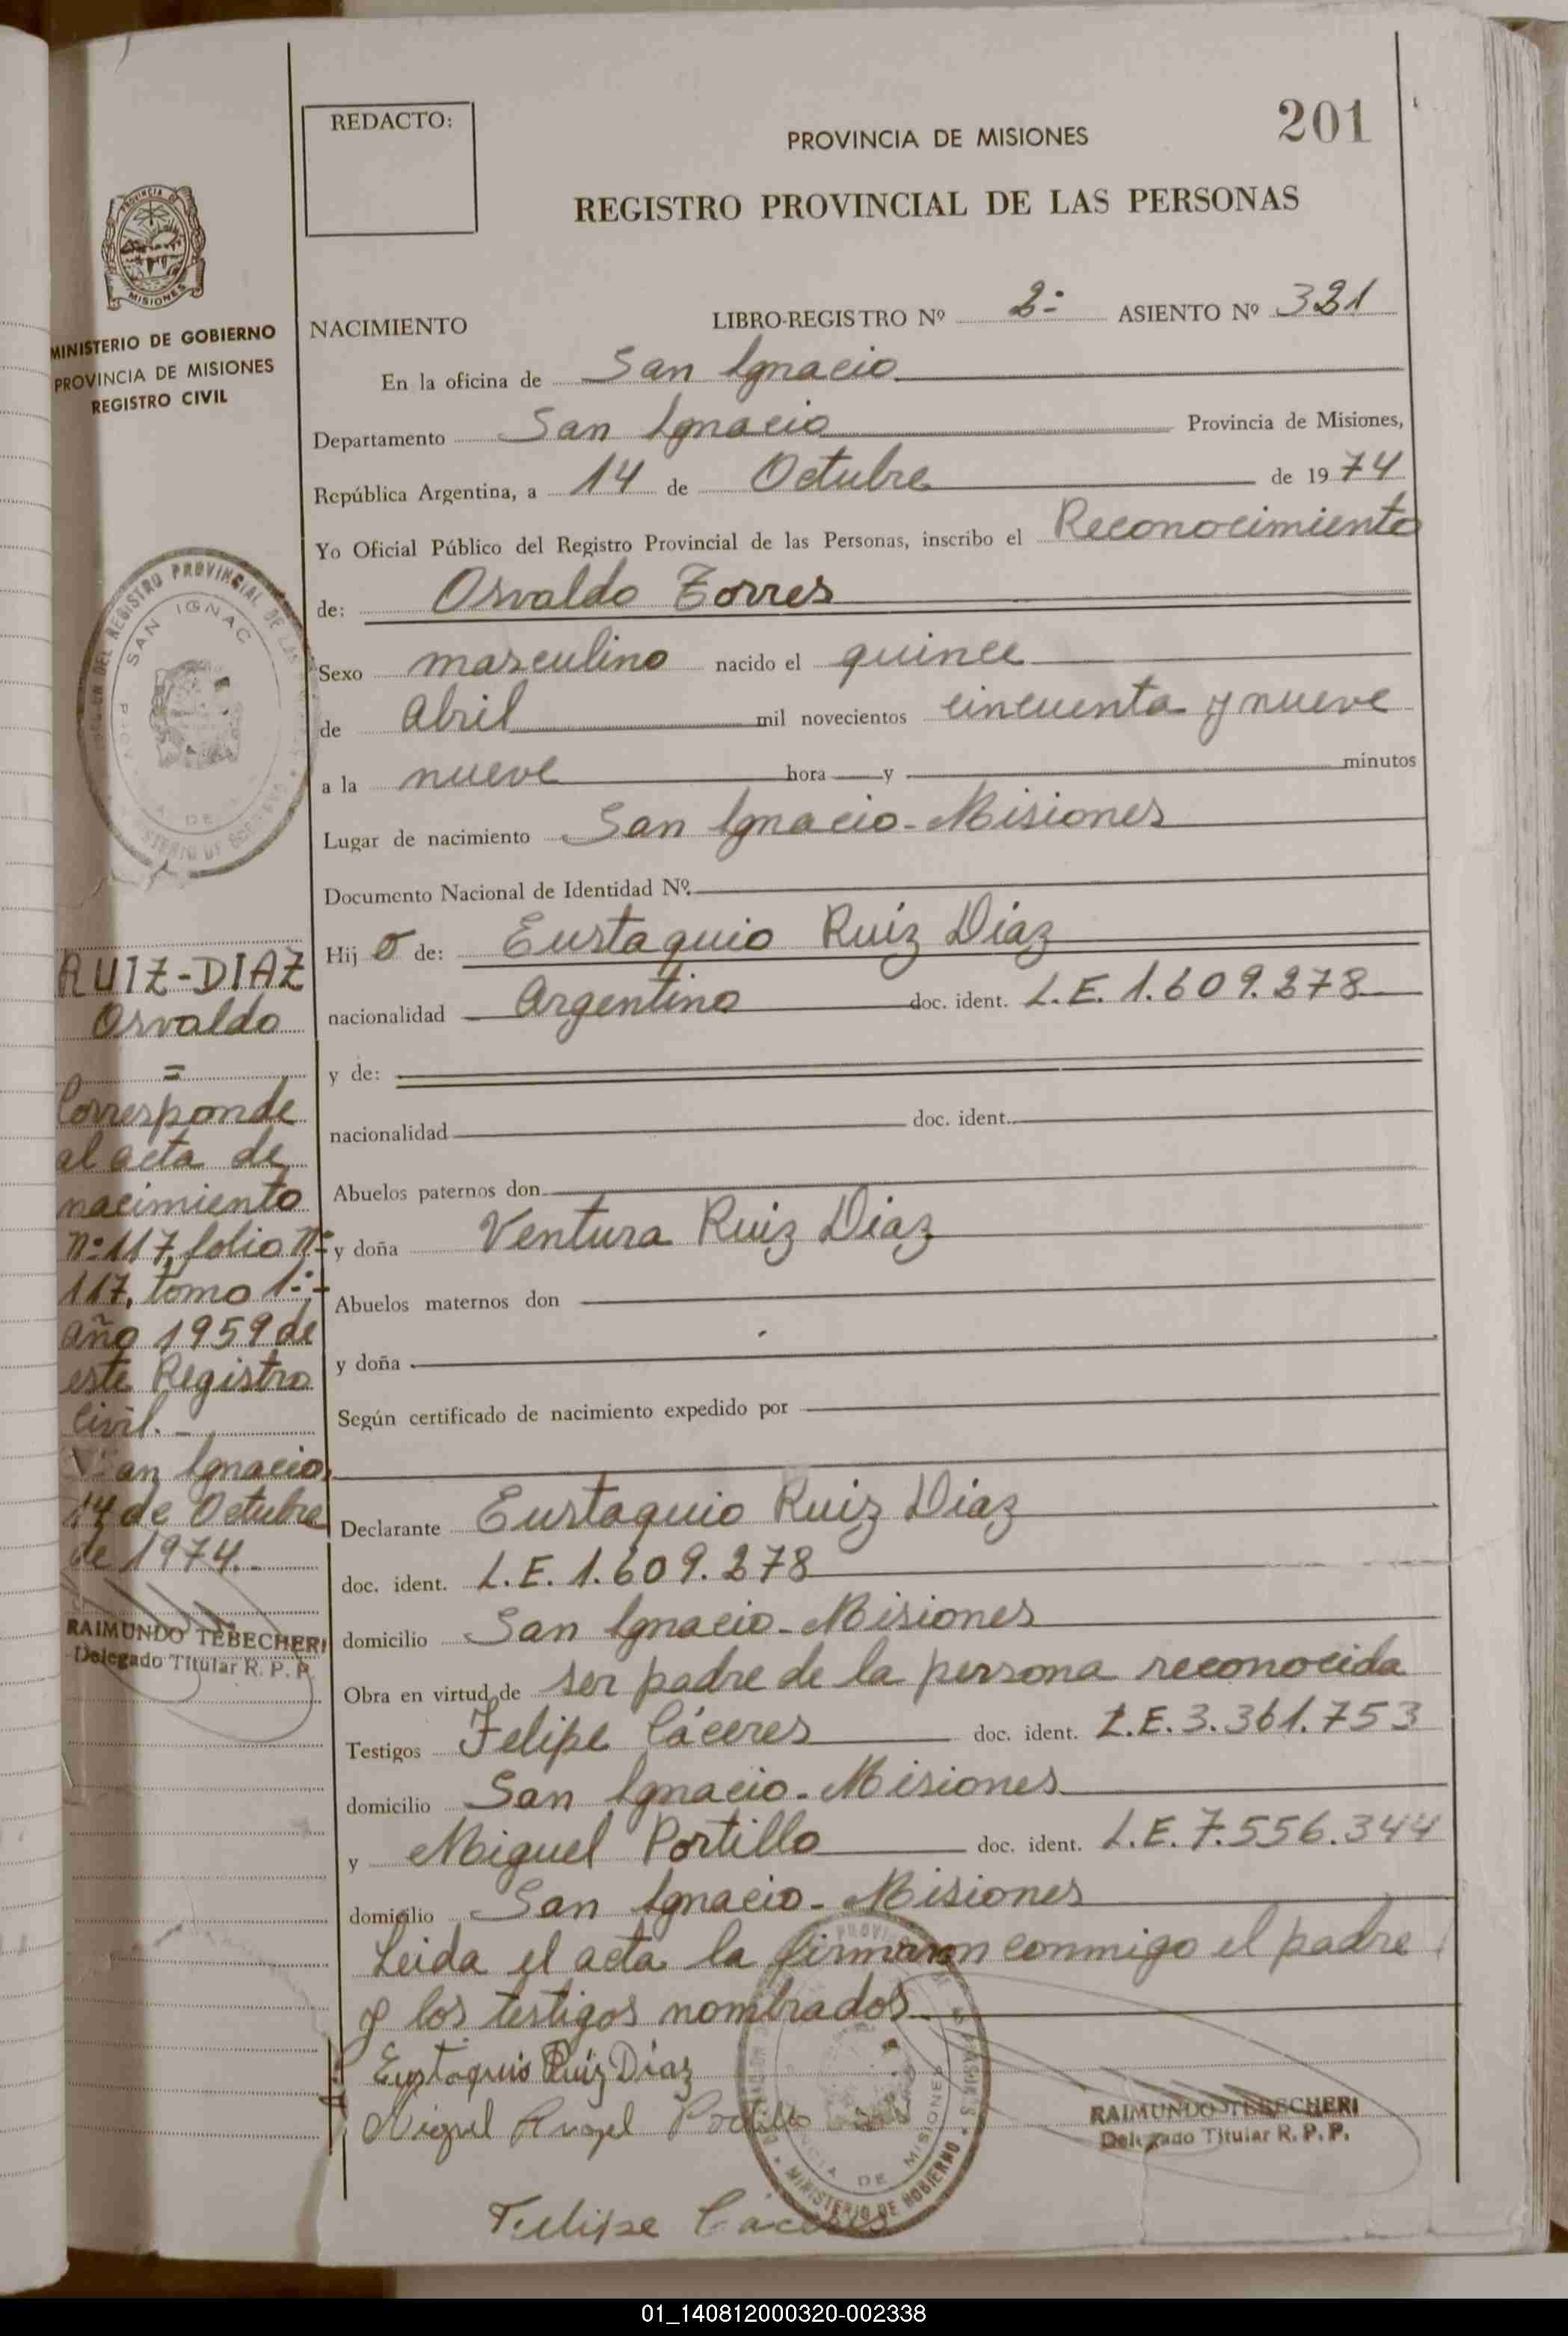 REDACTO:
201
PROVINCIA DE MISIONES
REGISTRO PROVINCIAL DE LAS PERSONAS
PROVINCIA
MISIONES
MINISTERIO DE GOBIERNO
PROVINCIA DE MISIONES
REGISTRO CIVIL
NACIMIENTO LIBRO-REGISTRO Nº 2:- ASIENTO Nº 321
En la oficina de San Ignacio
Departamento San Ignacio Provincia de Misiones,
República Argentina, a 14 de Octubre de 1974
Yo Oficial Público del Registro Provincial de las Personas, inscribo el Reconocimiento
de: Osvaldo Torres
Sexo masculino nacido el quince
de Abril mil novecientos cincuenta y nueve
a la nueve hora y minutos
Lugar de nacimiento San Ignacio - Misiones
Documento Nacional de Identidad Nº.
Hij o de: Eustaquio Ruiz Diaz
nacionalidad Argentino doc. ident. L.E. 1.609.278
y de:
nacionalidad doc. ident.
Abuelos paternos don
y doña Ventura Ruiz Diaz
Abuelos maternos don
y doña
Según certificado de nacimiento expedido por
Declarante Eustaquio Ruiz Diaz
doc. ident. L.E. 1.609.278
domicilio San Ignacio - Misiones
Obra en virtud de ser padre de la persona reconocida
Testigos Felipe Cáceres doc. ident. L.E. 3.361.753
domicilio San Ignacio - Misiones
y Miguel Portillo doc. ident. L.E. 7.556.344
domicilio San Ignacio - Misiones
Leida el acta la firmaron conmigo el padre
y los testigos nombrados.
Eustaquio Ruiz Diaz
Miguel Angel Portillo
Felipe Cáceres
RAIMUNDO TEBECHERI
Delegado Titular R. P. P.
MINISTERIO DE GOBIERNO
DE MISIONES
REGISTRO PROVINCIAL DE LAS
SAN IGNAC
RUIZ-DIAZ
Osvaldo
=
Corresponde
al acta de
nacimiento
Nº 117, folio Nº
117, tomo 1:-
año 1959 de
este Registro
Civil. -
San Ignacio,
14 de Octubre
de 1974.
RAIMUNDO TEBECHERI
Delegado Titular R. P. P.
01_140812000320-002338